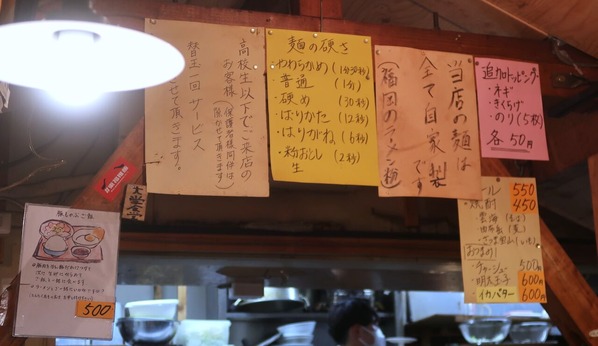 高校生以下でご来店の
お客様(保護者様同伴は
除かせて頂きます)
替玉一回サービス
させて頂きます。
麺の硬さ
・やわらかめ(1分30秒)
・普通(1分)
・硬め(30秒)
・ばりかた(12秒)
・はりがね(6秒)
・粉おとし(2秒)
生
当店の麺は
全て自家製です
(福岡のラーメン粉)
追加トッピング
・ネギ
・きくらげ
・のり(5枚)
各50円
ール 550
・焼酎 450
おつまみ
・チャーシュー 500円
・明太玉子 600円
・イカバター 600
豚しゃぶご飯
500